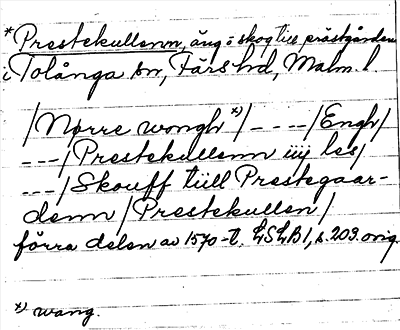 *Prestekullenn, äng o skog till prästgården
i Tolånga sn, Färs hd, Malm. l.
/Nørre wongh x)/ - - - -/Engh/
- - -/Prestekullenn iiij les/
- - -/Skouff tiill Prestegaar-
denn/Prestekullen/
förra delen av 1570-t. LSLB 1, s. 209. orig.
x) wang.